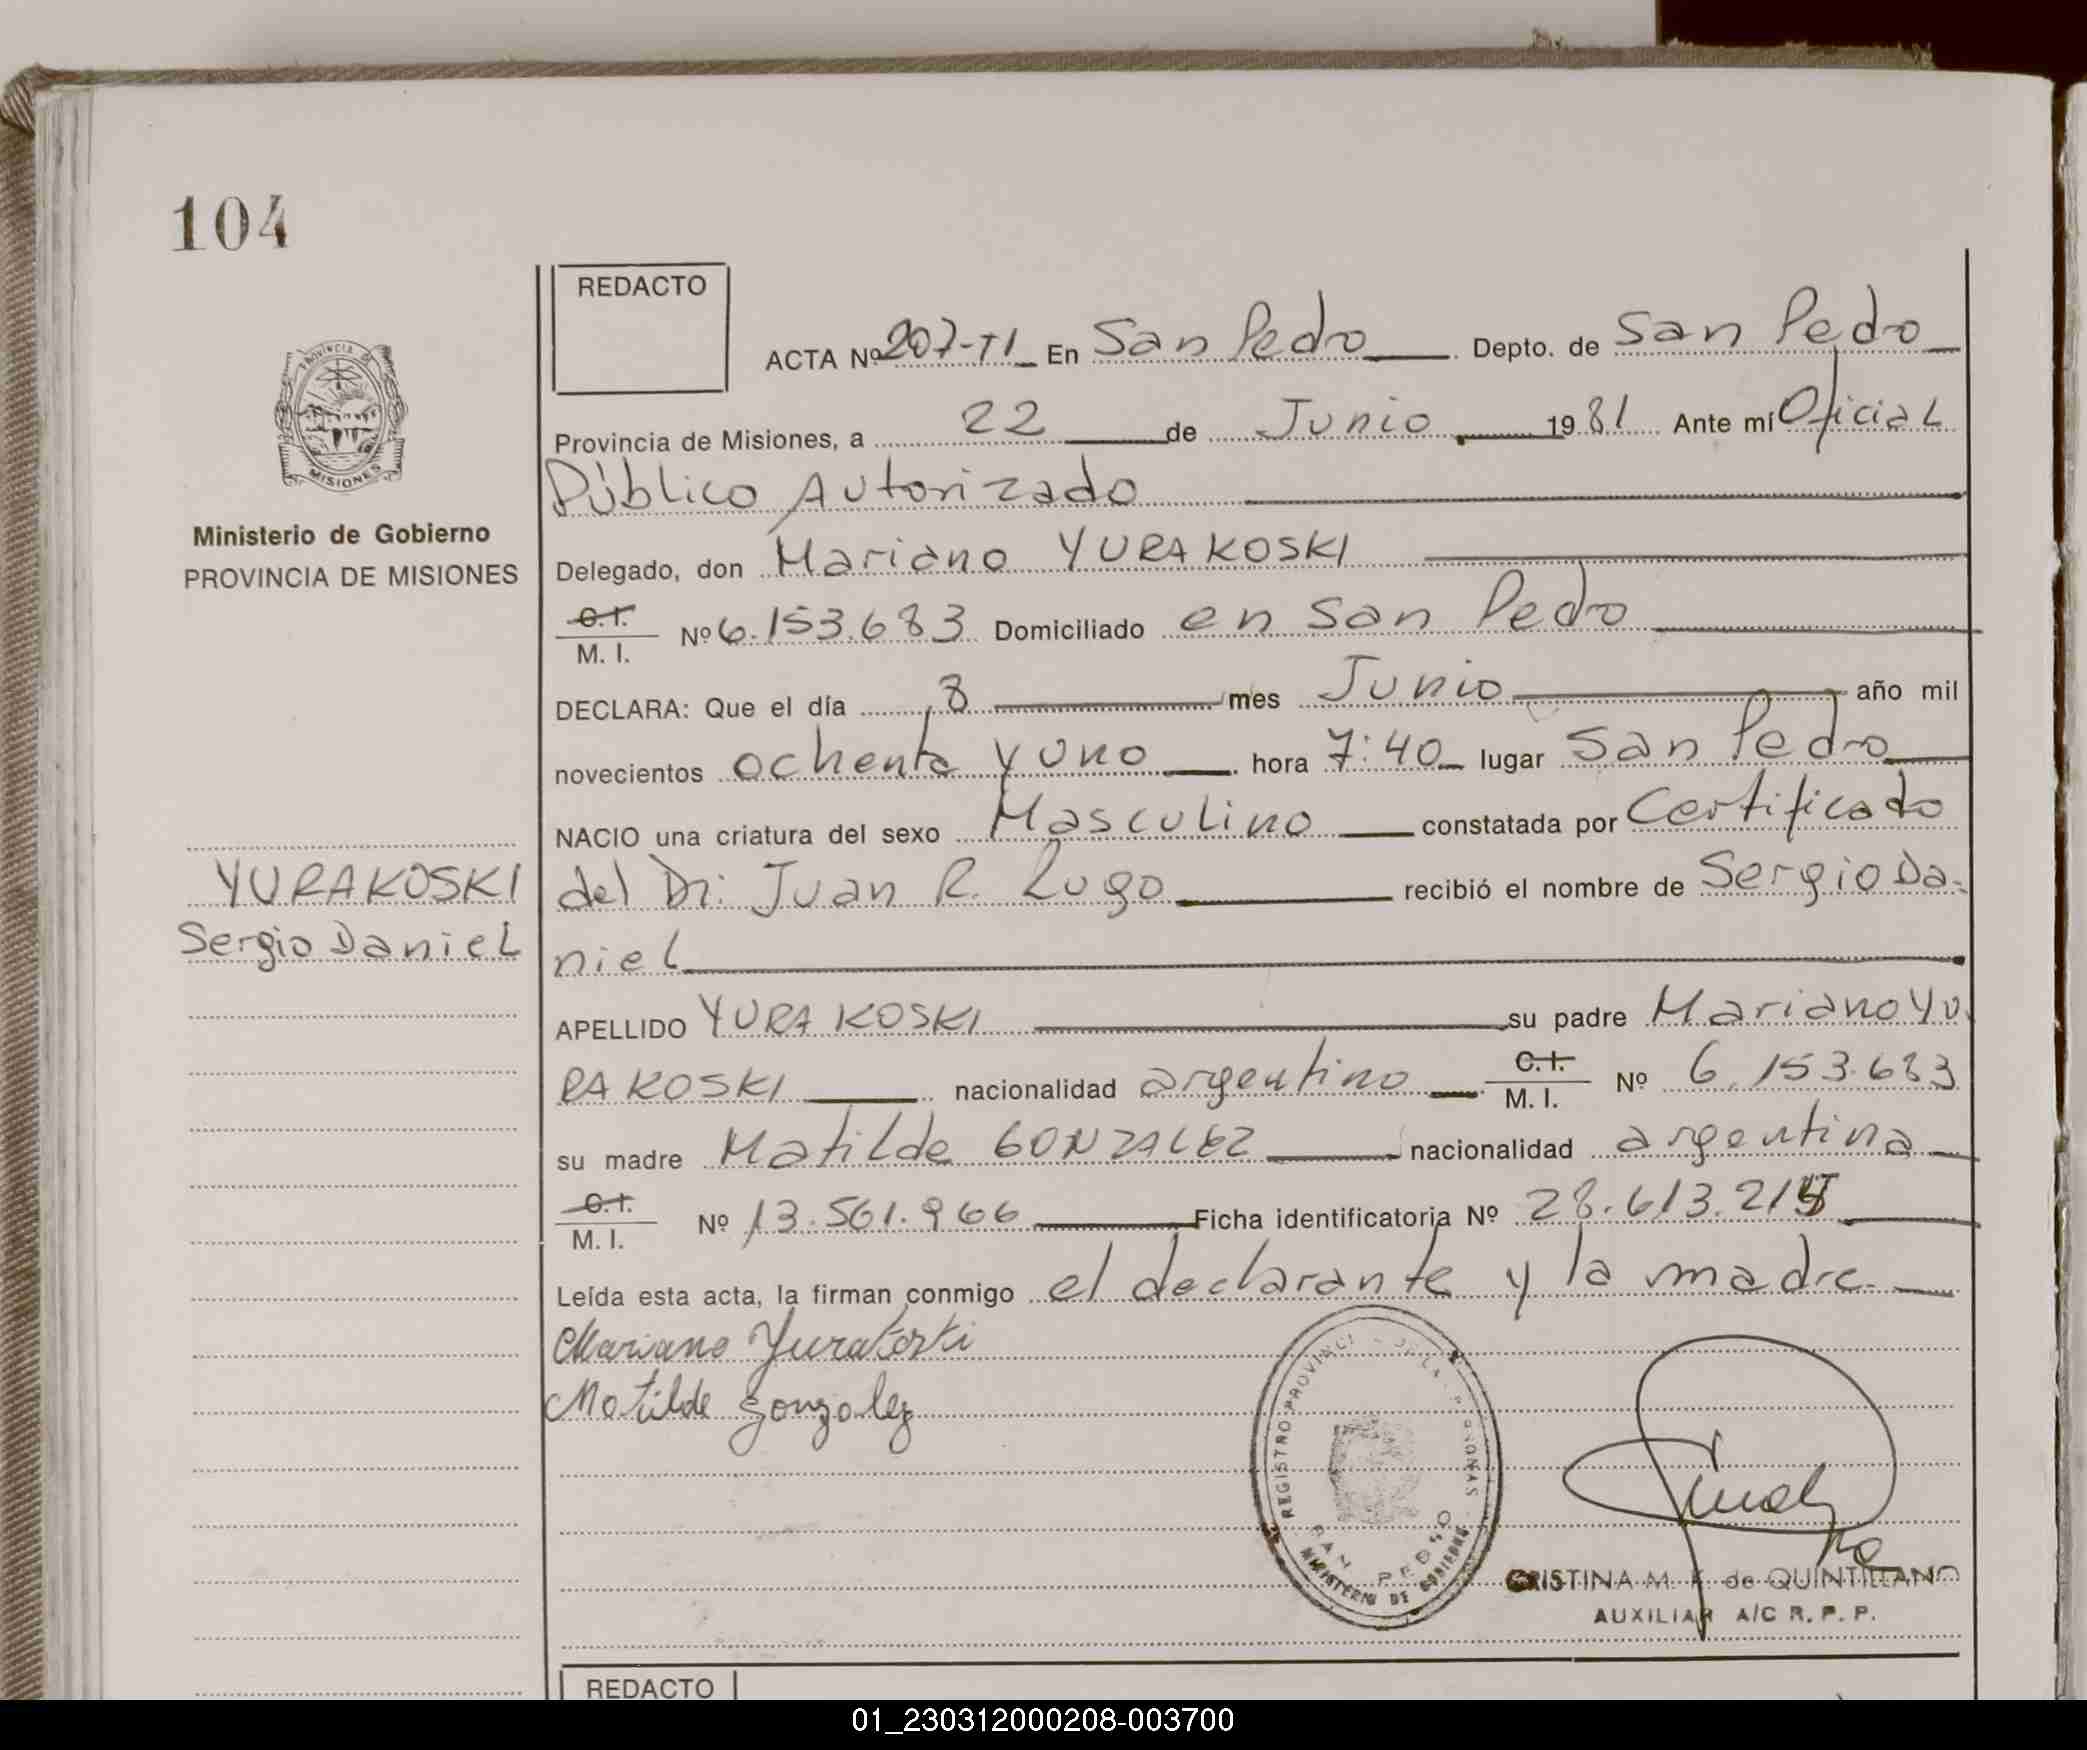 104
REDACTO
ACTA Nº 207-T1 En San Pedro Depto. de San Pedro
Provincia de Misiones, a 22 de Junio 1981 Ante mí Oficial
Público Autorizado
PROVINCIA DE
MISIONES
Ministerio de Gobierno
PROVINCIA DE MISIONES
Delegado, don Mariano YURAKOSKI
C.I.
M. I. Nº 6.153.683 Domiciliado en San Pedro
DECLARA: Que el día 8 mes Junio año mil
novecientos ochenta y uno hora 7:40 lugar San Pedro
NACIO una criatura del sexo Masculino constatada por Certificado
YURAKOSKI
Sergio Daniel
del Dr. Juan R. Lugo recibió el nombre de Sergio Da-
niel
APELLIDO YURAKOSKI su padre Mariano YU-
RAKOSKI nacionalidad argentino C.I. M. I. Nº 6.153.683
su madre Matilde GONZALEZ nacionalidad argentina
C.I.
M. I. Nº 13.561.966 Ficha identificatoria Nº 28.613.21
Leída esta acta, la firman conmigo el declarante y la madre.
Mariano Yurakoski
Matilde gonzalez
REGISTRO PROVINCI DE LA PERSONAS
SAN PEDRO
MINISTERIO DE GOBIERNO
CRISTINA M. F. de QUINTILLANO
AUXILIAR A/C R. P. P.
REDACTO
01_230312000208-003700